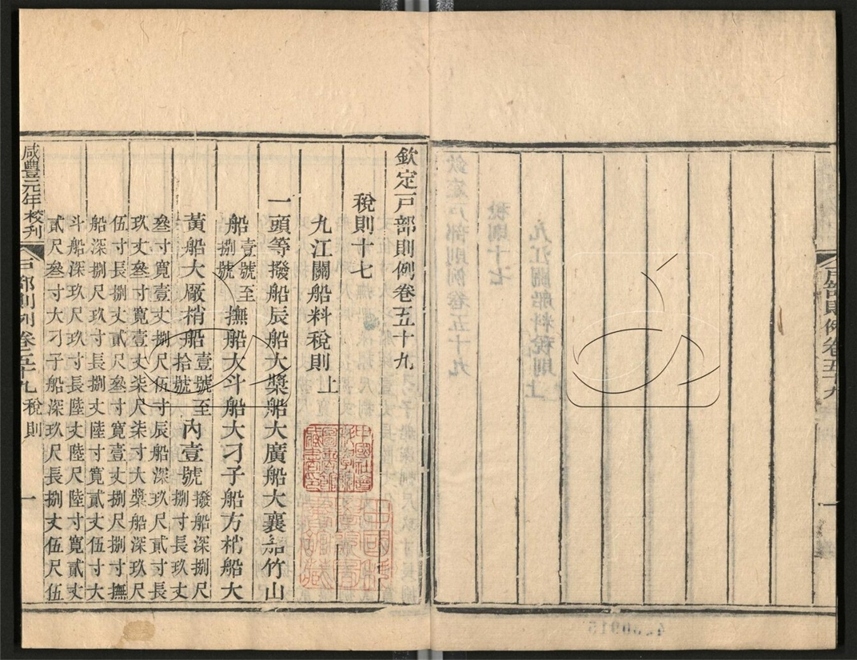 戶部則例卷五十九
欽定戶部則例卷五十九
稅則十七
九江關船料稅則上
一頭等撥船辰船大槳船大廣船大襄船竹山
船壹號至捌號撫船大斗船大刁子船方梢船大
黃船大廠梢船壹號至拾號內壹號撥船深捌尺捌寸長玖丈
叁寸寬壹丈捌尺伍寸辰船深玖尺貳寸長
玖丈叁寸寬壹丈柒尺柒寸大槳船深玖尺
伍寸長捌丈貳尺叁寸寬壹丈捌尺捌寸撫
船深捌尺玖寸長捌丈陸寸寬貳丈伍寸大
斗船深玖尺玖寸長陸丈陸尺陸寸寬貳丈
貳尺叁寸大刁子船深玖尺長捌丈伍尺伍
咸豐元年校刊 戶部則例卷五十九 稅則 一